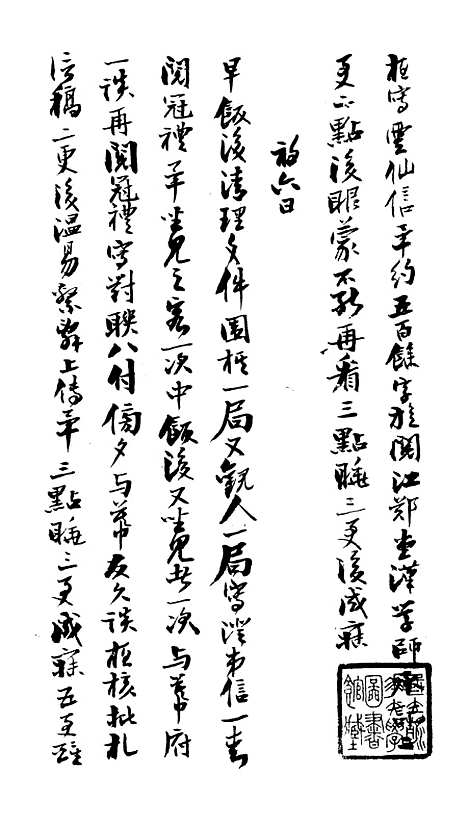 夜寫雲仙信一千約五百餘字旋閱江鄭堂漢學師承
更二點後眼蒙不能再看三點睡三更後成寐
初六日
早飯後清理文件圍棋一局又觀人一局寫澄弟信一書
閱冠禮 坐見之客一次中飯後又坐見者一次與幕府
一談再閱冠禮寫對聯八付傍夕與幕友久談夜核批札
信稿二更後溫易繫辭上傳畢三點睡三更成寐五更醒
圖書館藏